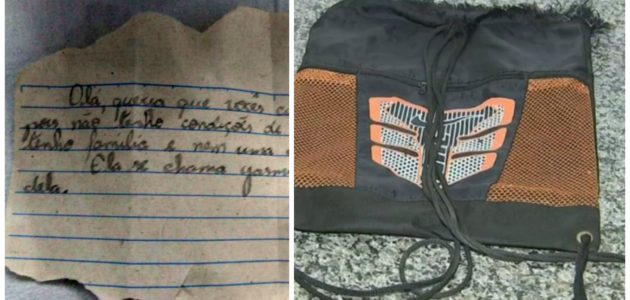 Olá, queria que vocês cu
pois não tenho condições de
tenho família e nem uma
Ela se chama yasm
dela.